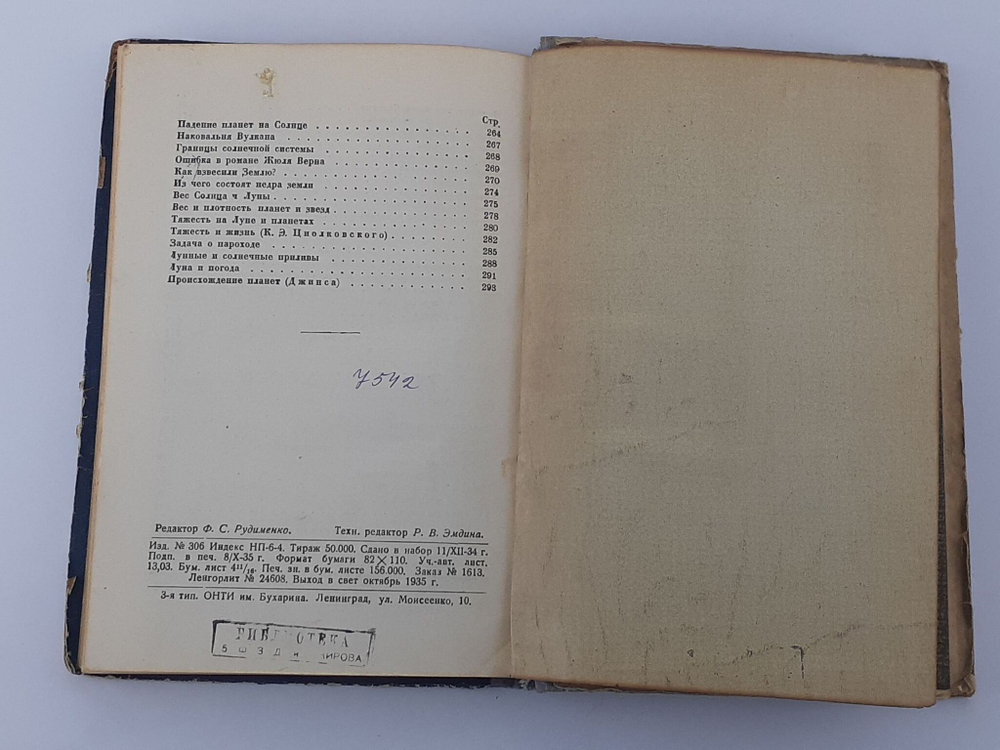 Стр.
Падение планет на Солнце . . . . . . . . . . . . . . . 264
Наковальня Вулкана . . . . . . . . . . . . . . . 267
Границы солнечной системы . . . . . . . . . . . . . . . 268
Ошибка в романе Жюля Верна . . . . . . . . . . . . . . . 269
Как взвесили Землю? . . . . . . . . . . . . . . . 270
Из чего состоят недра земли . . . . . . . . . . . . . . . 274
Вес Солнца и Луны . . . . . . . . . . . . . . . 275
Вес и плотность планет и звезд . . . . . . . . . . . . . . . 278
Тяжесть на Луне и планетах . . . . . . . . . . . . . . . 280
Тяжесть и жизнь (К. Э. Циолковского) . . . . . . . . 282
Задача о пароходе . . . . . . . . . . . . . . . 285
Лунные и солнечные приливы . . . . . . . . . . . . . . . 288
Луна и погода . . . . . . . . . . . . . . . 291
Происхождение планет (Джинса) . . . . . . . . . . . . 293
7542
Редактор Ф. С. Рудименко. Техн. редактор Р. В. Эмдина.
Изд. № 306 Индекс НП-6-4. Тираж 50.000. Сдано в набор 11/XII-34 г.
Подп. в печ. 8/X-35 г. Формат бумаги 82×110. Уч.-авт. лист.
13,03. Бум. лист 4¹¹/₁₆. Печ. зн. в бум. листе 156.000. Заказ № 1613.
Ленгорлит № 24608. Выход в свет октябрь 1935 г.
3-я тип. ОНТИ им. Бухарина. Ленинград, ул. Моисеенко, 10.
БИБЛИОТЕКА